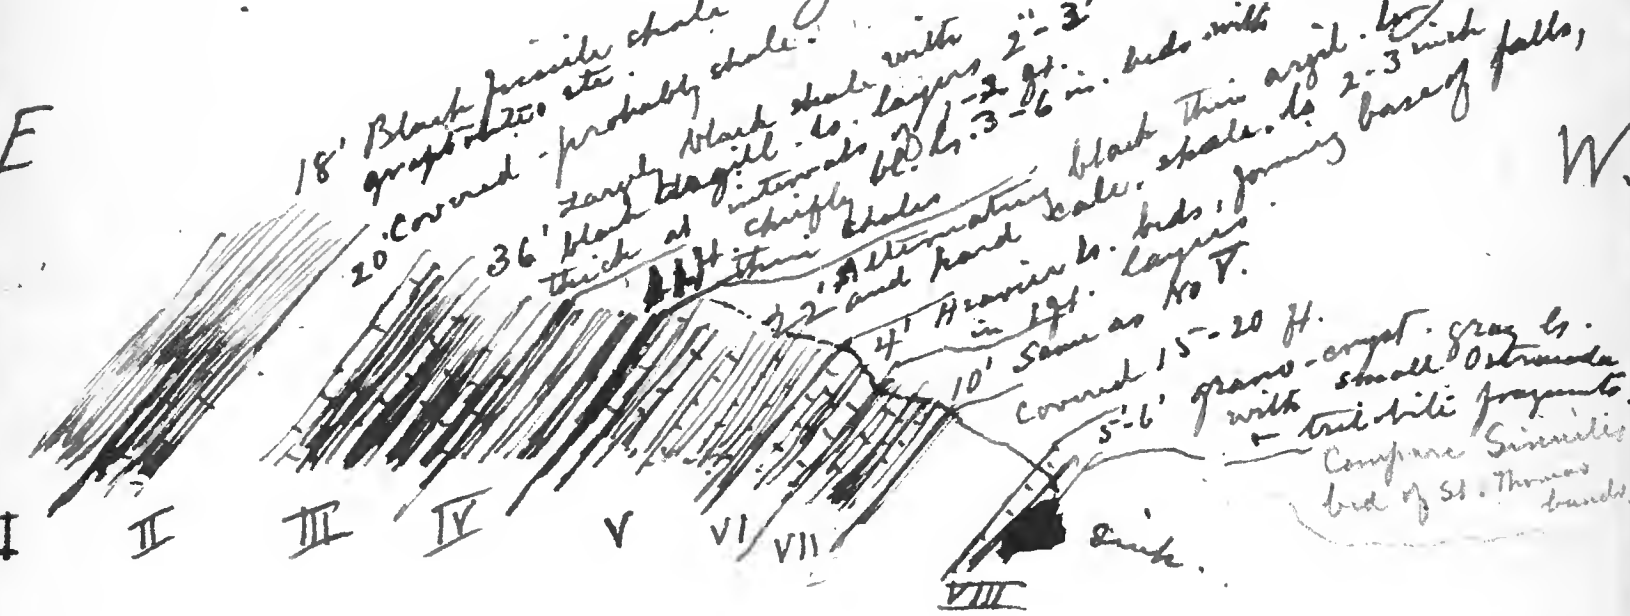 E
W.
18' Black fissile shale
graptolites etc.
20' Covered - probably shale.
36' Largely black shale with
black argill. ls. layers 2"-3"
thick at intervals of 1-2 ft.
ft. chiefly bl. ls. 3-6 in. beds with
thin shales
22' Alternating black thin argil. ls
and hard calc. shale. ls 2-3 inch
4' Heavier ls. beds, forming base of falls,
in 1 ft. layers.
10' Same as No V.
Covered 15-20 ft.
5'-6' grano-cryst. gray ls.
with small Ostracoda
← trilobite fragments.
Compare Similis
bed of St. Thomas
Sink.
I
II
III
IV
V
VI
VII
VIII